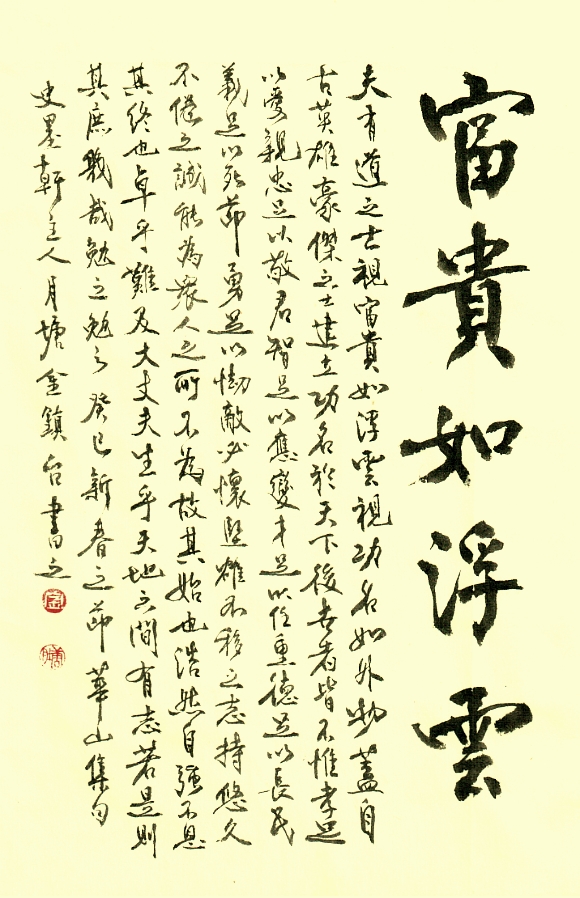 富貴如浮雲
夫有道之士視富貴如浮雲視功名如外物蓋自
古英雄豪傑之士建立功名於天下後世者皆不惟孝足
以愛親忠足以敬君智足以應變才足以任重德足以長民
義足以死節勇足以恸敵必懷堅確不移之志持悠久
不倦之誠能為衆人之所不為故其始也浩然自强不息
其終也卓乎難及大丈夫生乎天地之間有志若是則
其庶幾哉勉之勉之 癸巳新春之節 華山集句
史墨軒主人月塘金鎮台書之